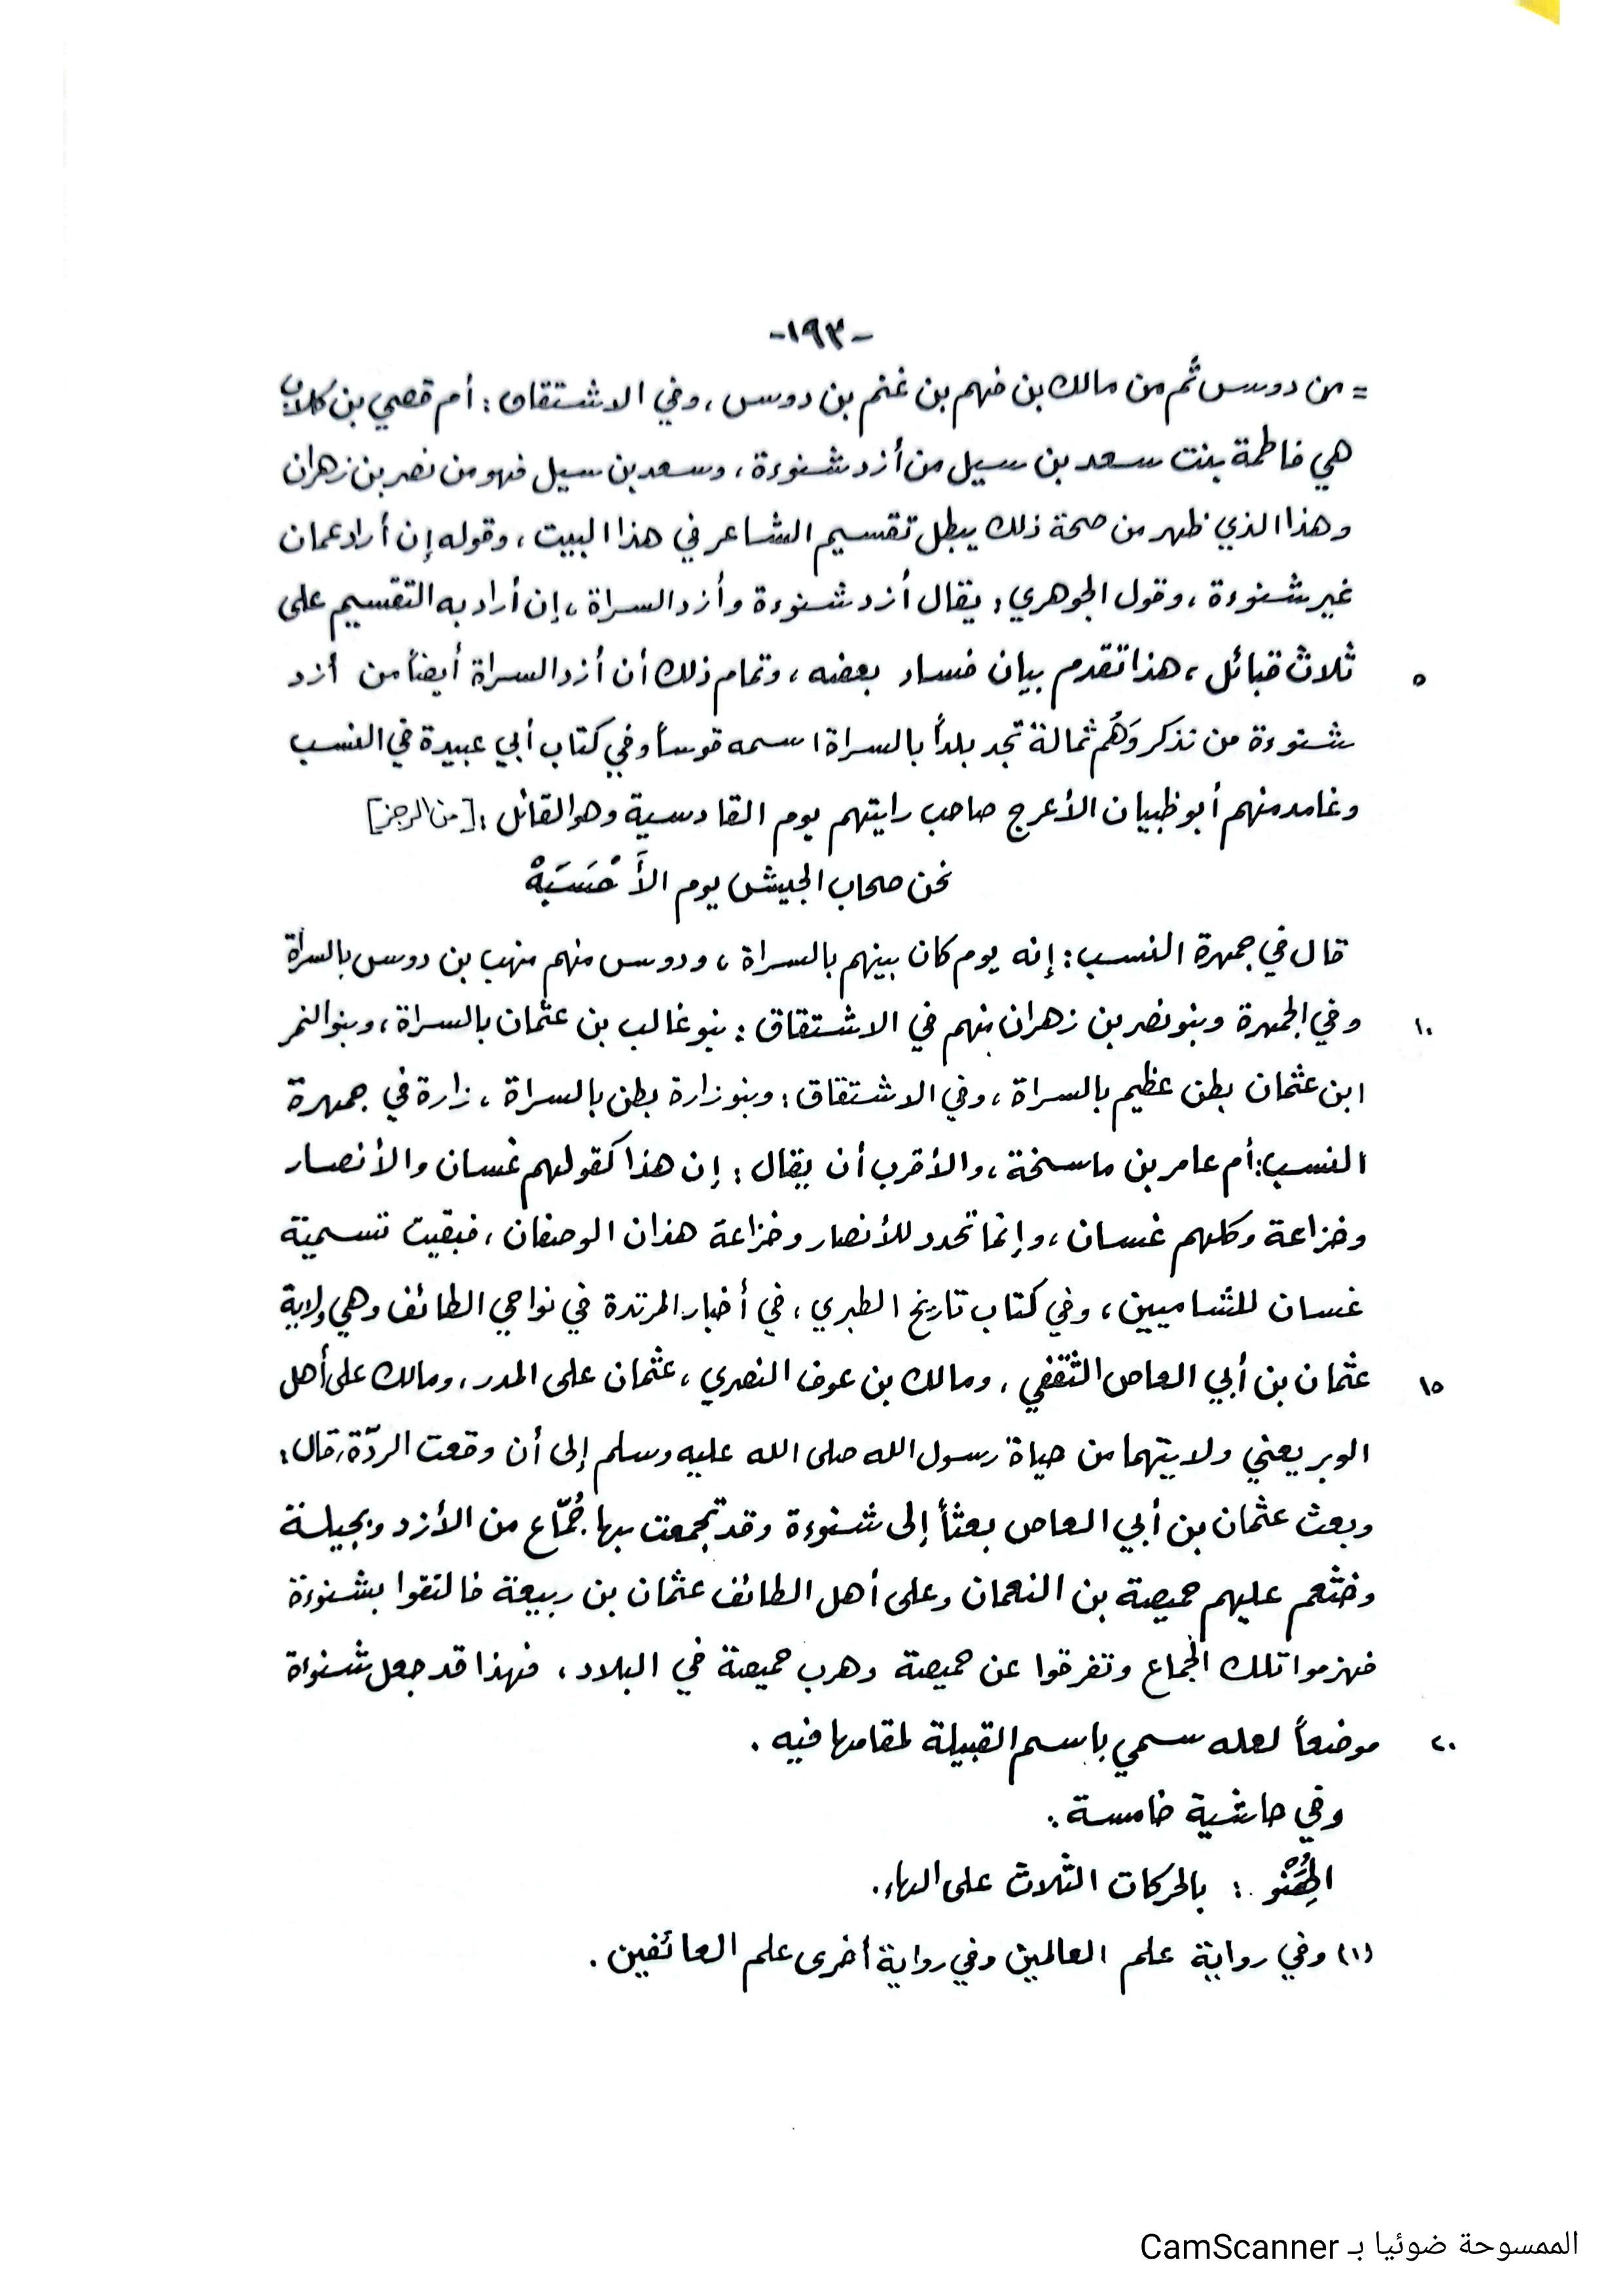 -١٩٣-
= من دوس ثم من مالك بن فهم بن غنم بن دوس ، وفي الاشتقاق : أم قصي بن كلاب
هي فاطمة بنت سعد بن سيل من أزد شنوءة ، وسعد بن سيل فهو من نصر بن زهران
وهذا الذي ظهر من صحة ذلك يبطل تقسيم الشاعر في هذا البيت ، وقوله إن أراد عمان
غير شنوءة ، وقول الجوهري : يقال أزد شنوءة وأزد السراة ، إن أراد به التقسيم على
٥ ثلاث قبائل ، هذا تقدم بيان فساد بعضه ، وتمام ذلك أن أزد السراة أيضاً من أزد
شنوءة من نذكر وَهُم ثمالة تجد بلداً بالسراة اسمه قوساً وفي كتاب أبي عبيدة في النسب
وغامد منهم أبو ظبيان الأعرج صاحب رايتهم يوم القادسية وهو القائل : [من الرجز]
نحن صحاب الجيش يوم الأَحْسَبَهْ
قال في جمهرة النسب : إنه يوم كان بينهم بالسراة ، ودوس منهم منهب بن دوس بالسراة
١٠ وفي الجمهرة وبنو نصر بن زهران منهم في الاشتقاق : بنو غالب بن عثمان بالسراة ، وبنو النمر
ابن عثمان بطن عظيم بالسراة ، وفي الاشتقاق : وبنو زارة بطن بالسراة ، زارة في جمهرة
النسب : أم عامر بن ماسخة ، والأقرب أن يقال : إن هذا كقولهم غسان والأنصار
وخزاعة وكلهم غسان ، وإنما تحدد للأنصار وخزاعة هذان الوصفان ، فبقيت تسمية
غسان للشاميين ، وفي كتاب تاريخ الطبري ، في أخبار المرتدة في نواحي الطائف وهي ولاية
١٥ عثمان بن أبي العاص الثقفي ، ومالك بن عوف النصري ، عثمان على المدر ، ومالك على أهل
الوبر يعني ولايتهما من حياة رسول الله صلى الله عليه وسلم إلى أن وقعت الردّة ، قال :
وبعث عثمان بن أبي العاص بعثاً إلى شنوءة وقد تجمعت بها جُمّاع من الأزد وبجيلة
وخثعم عليهم حميصة بن النعمان وعلى أهل الطائف عثمان بن ربيعة فالتقوا بشنوءة
فهزموا تلك الجماع وتفرقوا عن حميصة وهرب حميصة في البلاد ، فهذا قد جعل شنوءة
٢٠ موضعاً لعله سمي باسم القبيلة لمقامها فيه .
وفي حاشية خامسة :
الهنو : بالحركات الثلاث على الهاء .
(١) وفي رواية علم العالمين وفي رواية أخرى علم العائفين .
الممسوحة ضوئيا بـ CamScanner